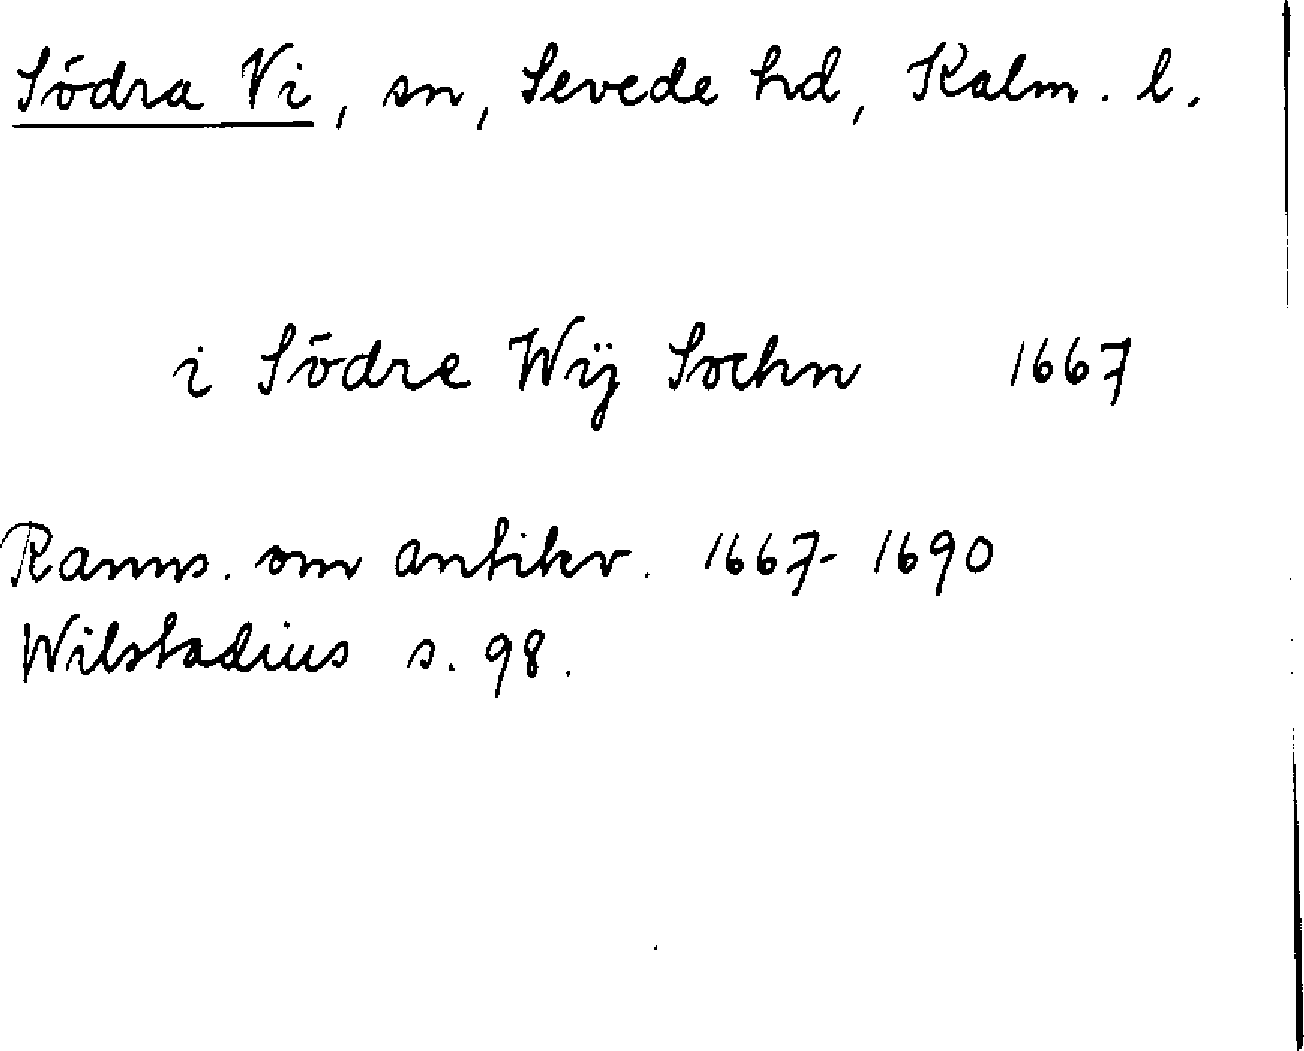 Södra Vi, sn, Sevede hd, Kalm. l.
i Södre Wÿ Sochn 1667
Ranns. om antikv. 1667-1690
Wilstadius s. 98.